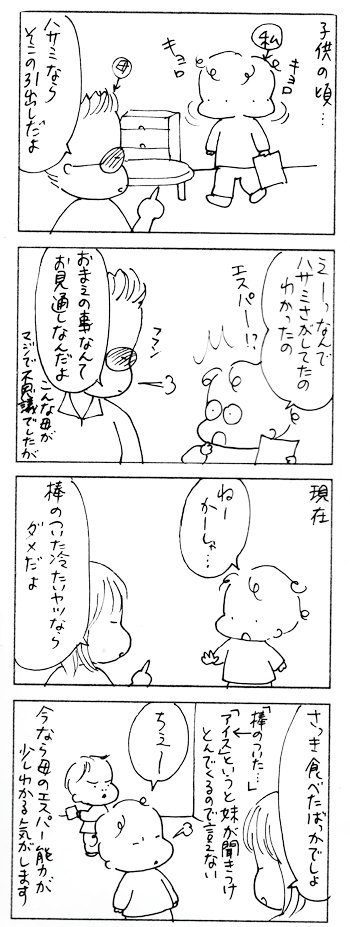 子供の頃…
私
キョロ
キョロ
母
ハサミなら
そこの引出しだよ
えーっなんで
ハサミさがしてたの
わかったの
エスパー!?
おまえの事なんて
お見通しなんだよ
フフン
こんな母が
マジで不思議でしたが
現在
ねー
かーしゃ…
棒のついた冷たいヤツなら
ダメだよ
さっき食べたばっかでしょ
「棒のついた…」
「アイス」というと妹が聞きつけ
とんでくるので言えない
ちぇー
今なら母のエスパー能力が
少しわかる気がします